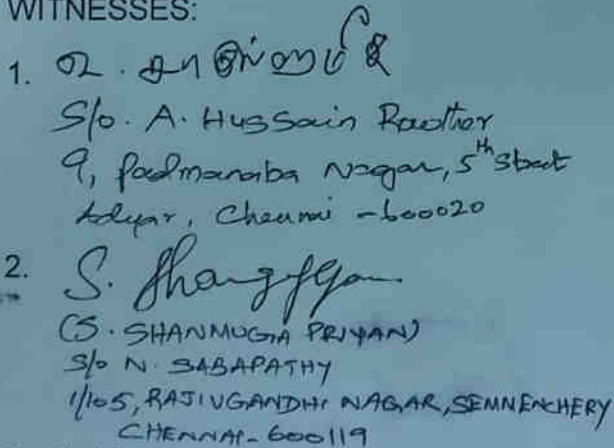 WITNESSES:
1.
S/o. A. Hussain Rawther
9, Padmanaba Nagar, 5th Street
Adyar, Chennai - 600020
2. S.
(S. SHANMUGA PRIYAN)
S/o N. SABAPATHY
1/105, RAJIVGANDHI NAGAR, SEMNENCHERY
CHENNAI - 600119